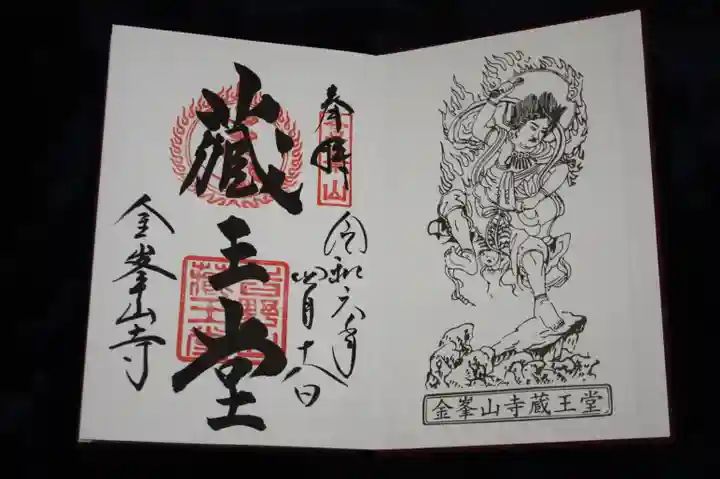 金峯山寺蔵王堂
奉拝
令和六年
四月十八日
藏王堂
金峯山寺